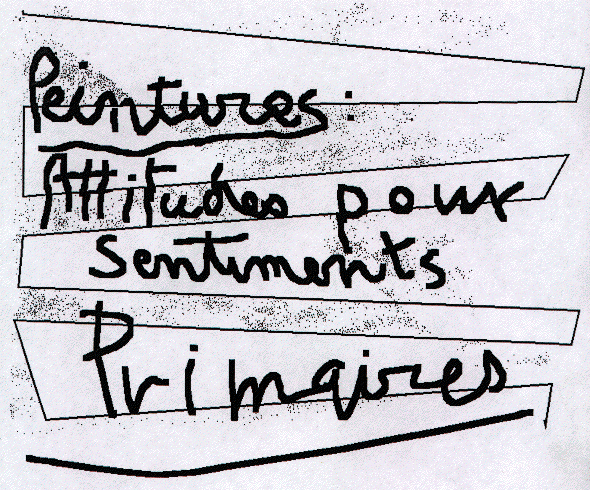 Peintures:
Attitudes pour
sentiments
Primaires